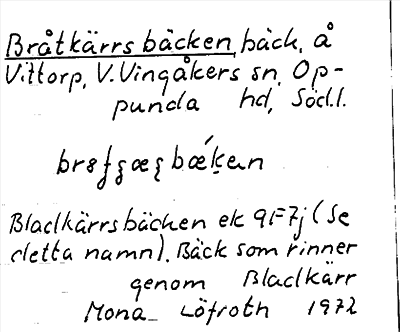 Bråtkärrsbäcken, bäck, å
Vittorp, V. Vingåkers sn, Op-
punda hd, Södl.
Bladkärrsbäcken ek 9F7j (Se
detta namn). Bäck som rinner
genom Bladkärr
Mona Löfroth 1972